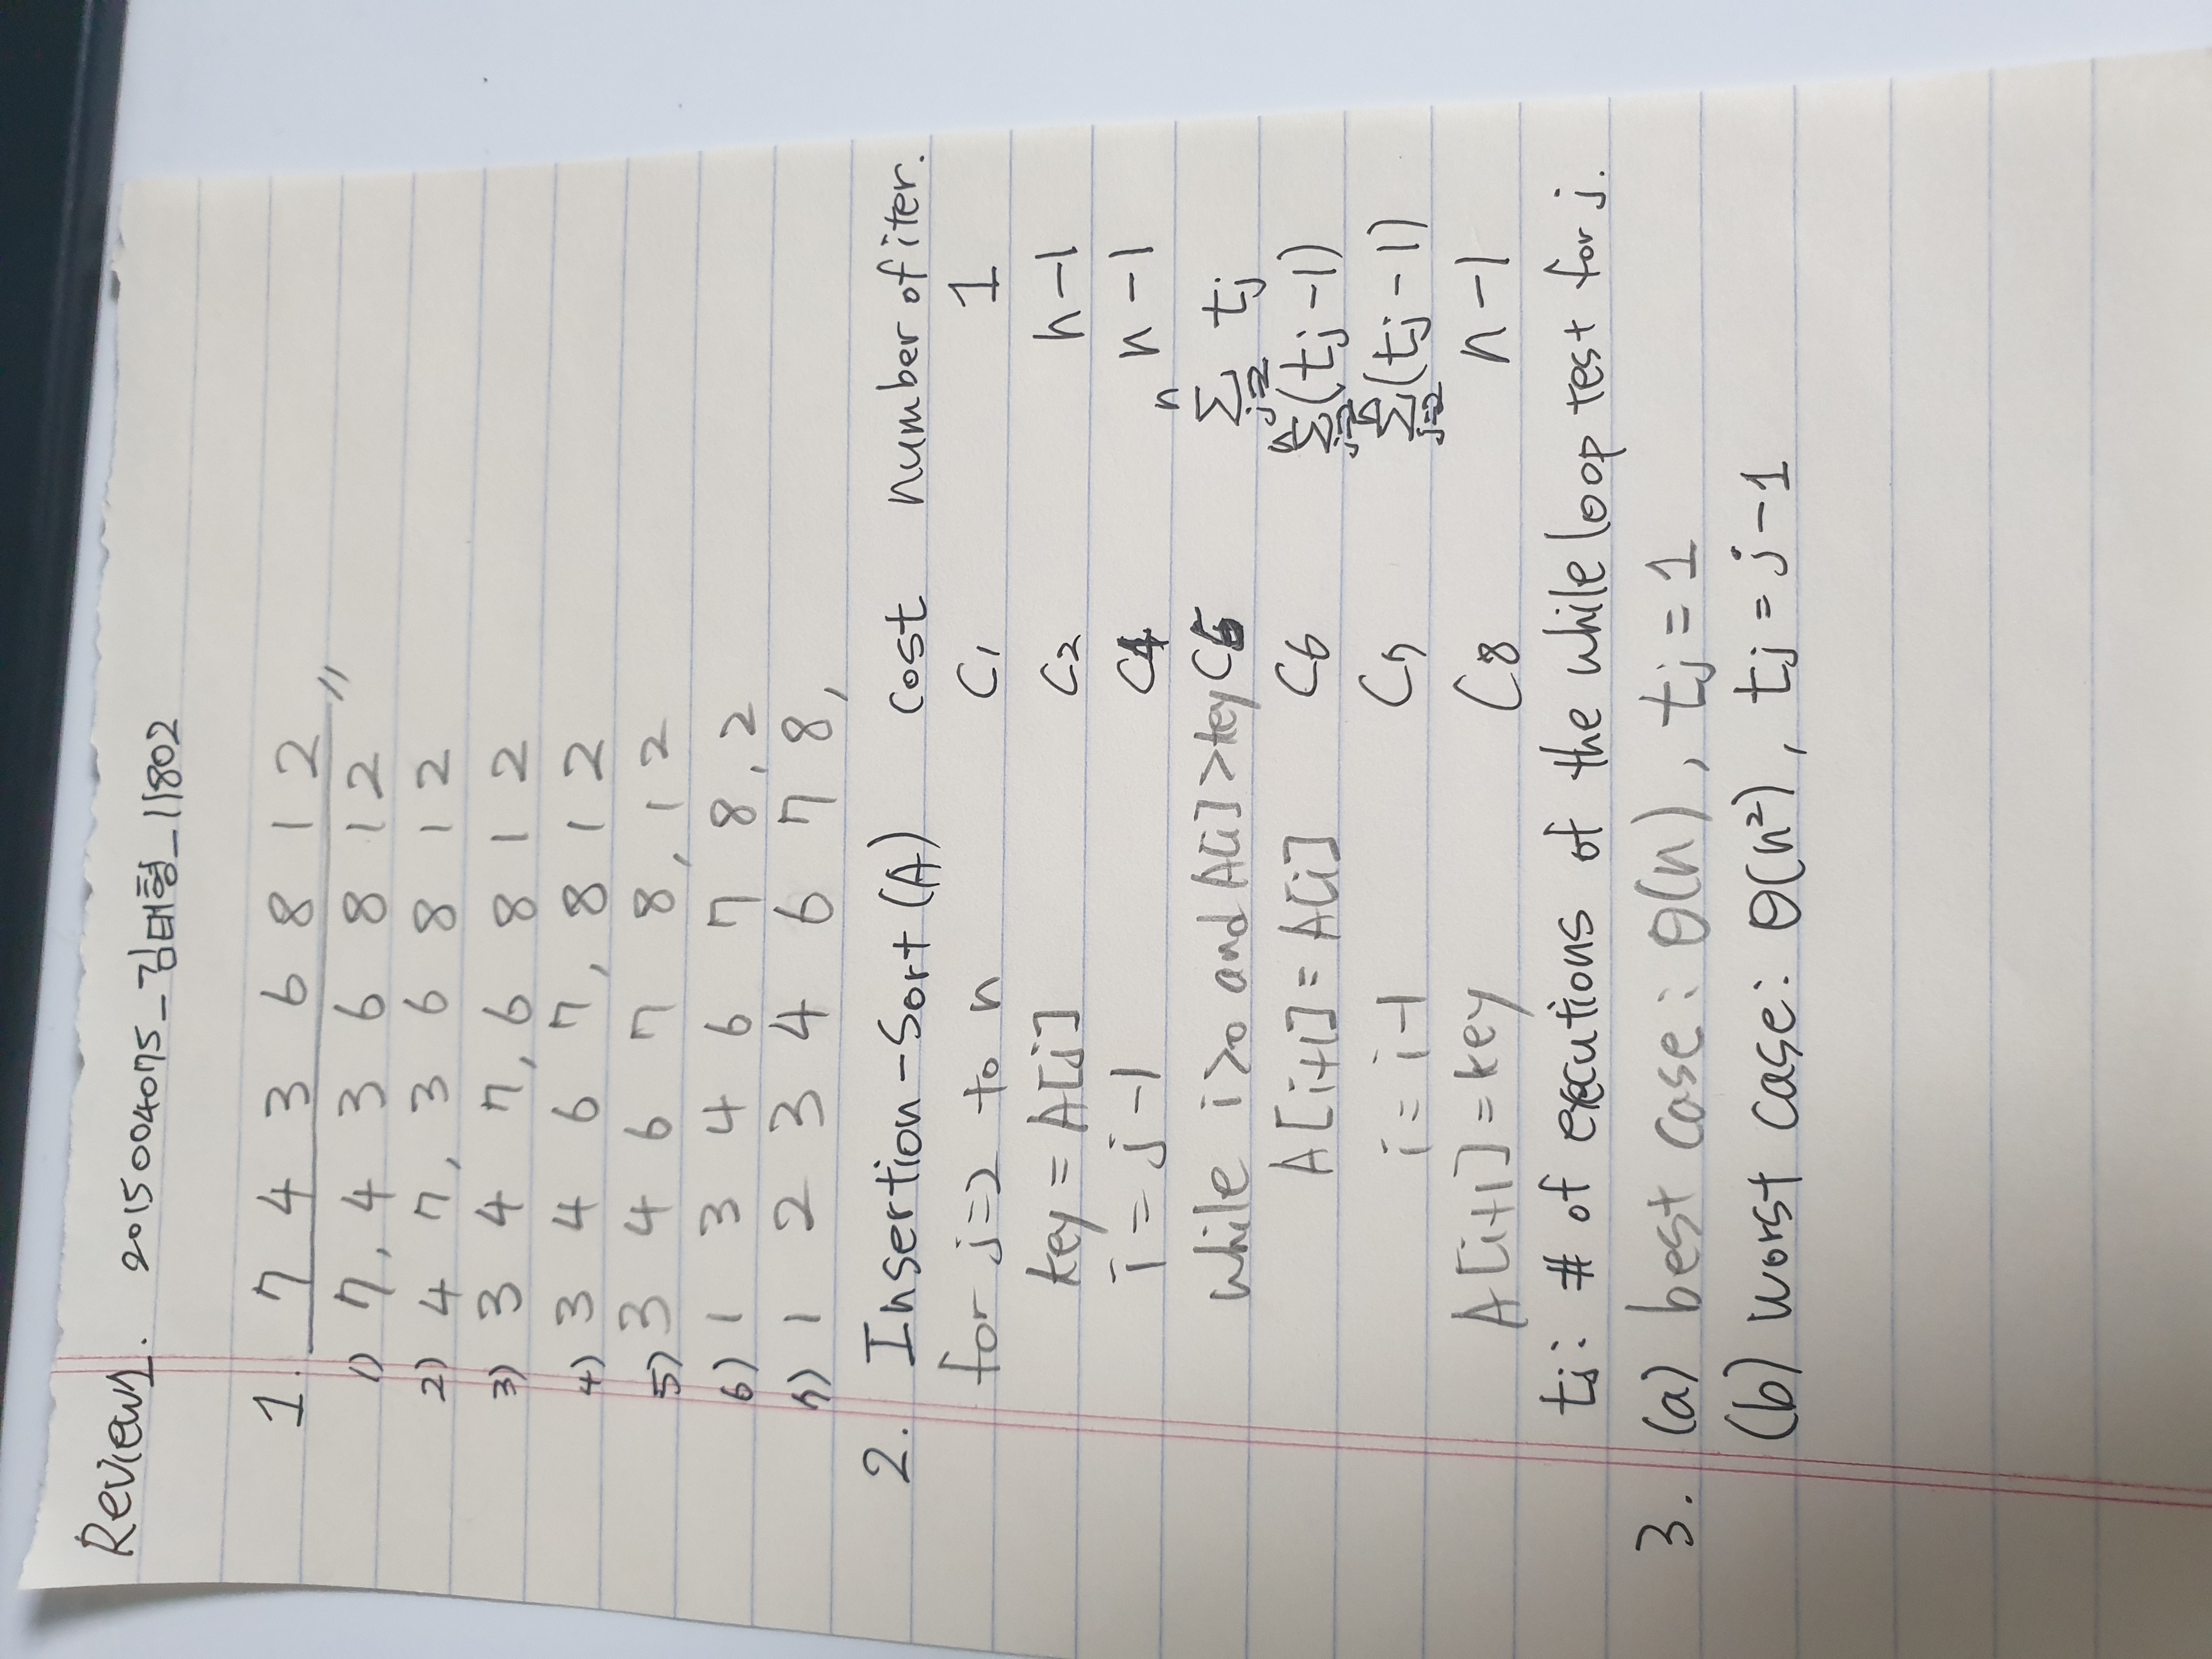 Review1. 2015004075_김태형_11802
1. 7 4 3 6 8 1 2 〃
1) 7, 4 3 6 8 1 2
2) 4 7, 3 6 8 1 2
3) 3 4 7, 6 8 1 2
4) 3 4 6 7, 8 1 2
5) 3 4 6 7 8, 1 2
6) 1 3 4 6 7 8, 2
7) 1 2 3 4 6 7 8,
2. Insertion-Sort (A) cost number of iter.
for j=2 to n C₁ 1
key = A[j] C₂ n-1
i = j-1 C₄ n-1
while i>0 and A[i]>key C₅ ∑ⁿⱼ₌₂ tj
A[i+1] = A[i] C₆ ∑ⁿⱼ₌₂ (tj-1)
i = i-1 C₇ ∑ⁿⱼ₌₂ (tj-1)
A[i+1]=key C₈ n-1
tj: # of executions of the while loop test for j.
3. (a) best case: θ(n), tj = 1
(b) worst case: θ(n²), tj = j-1